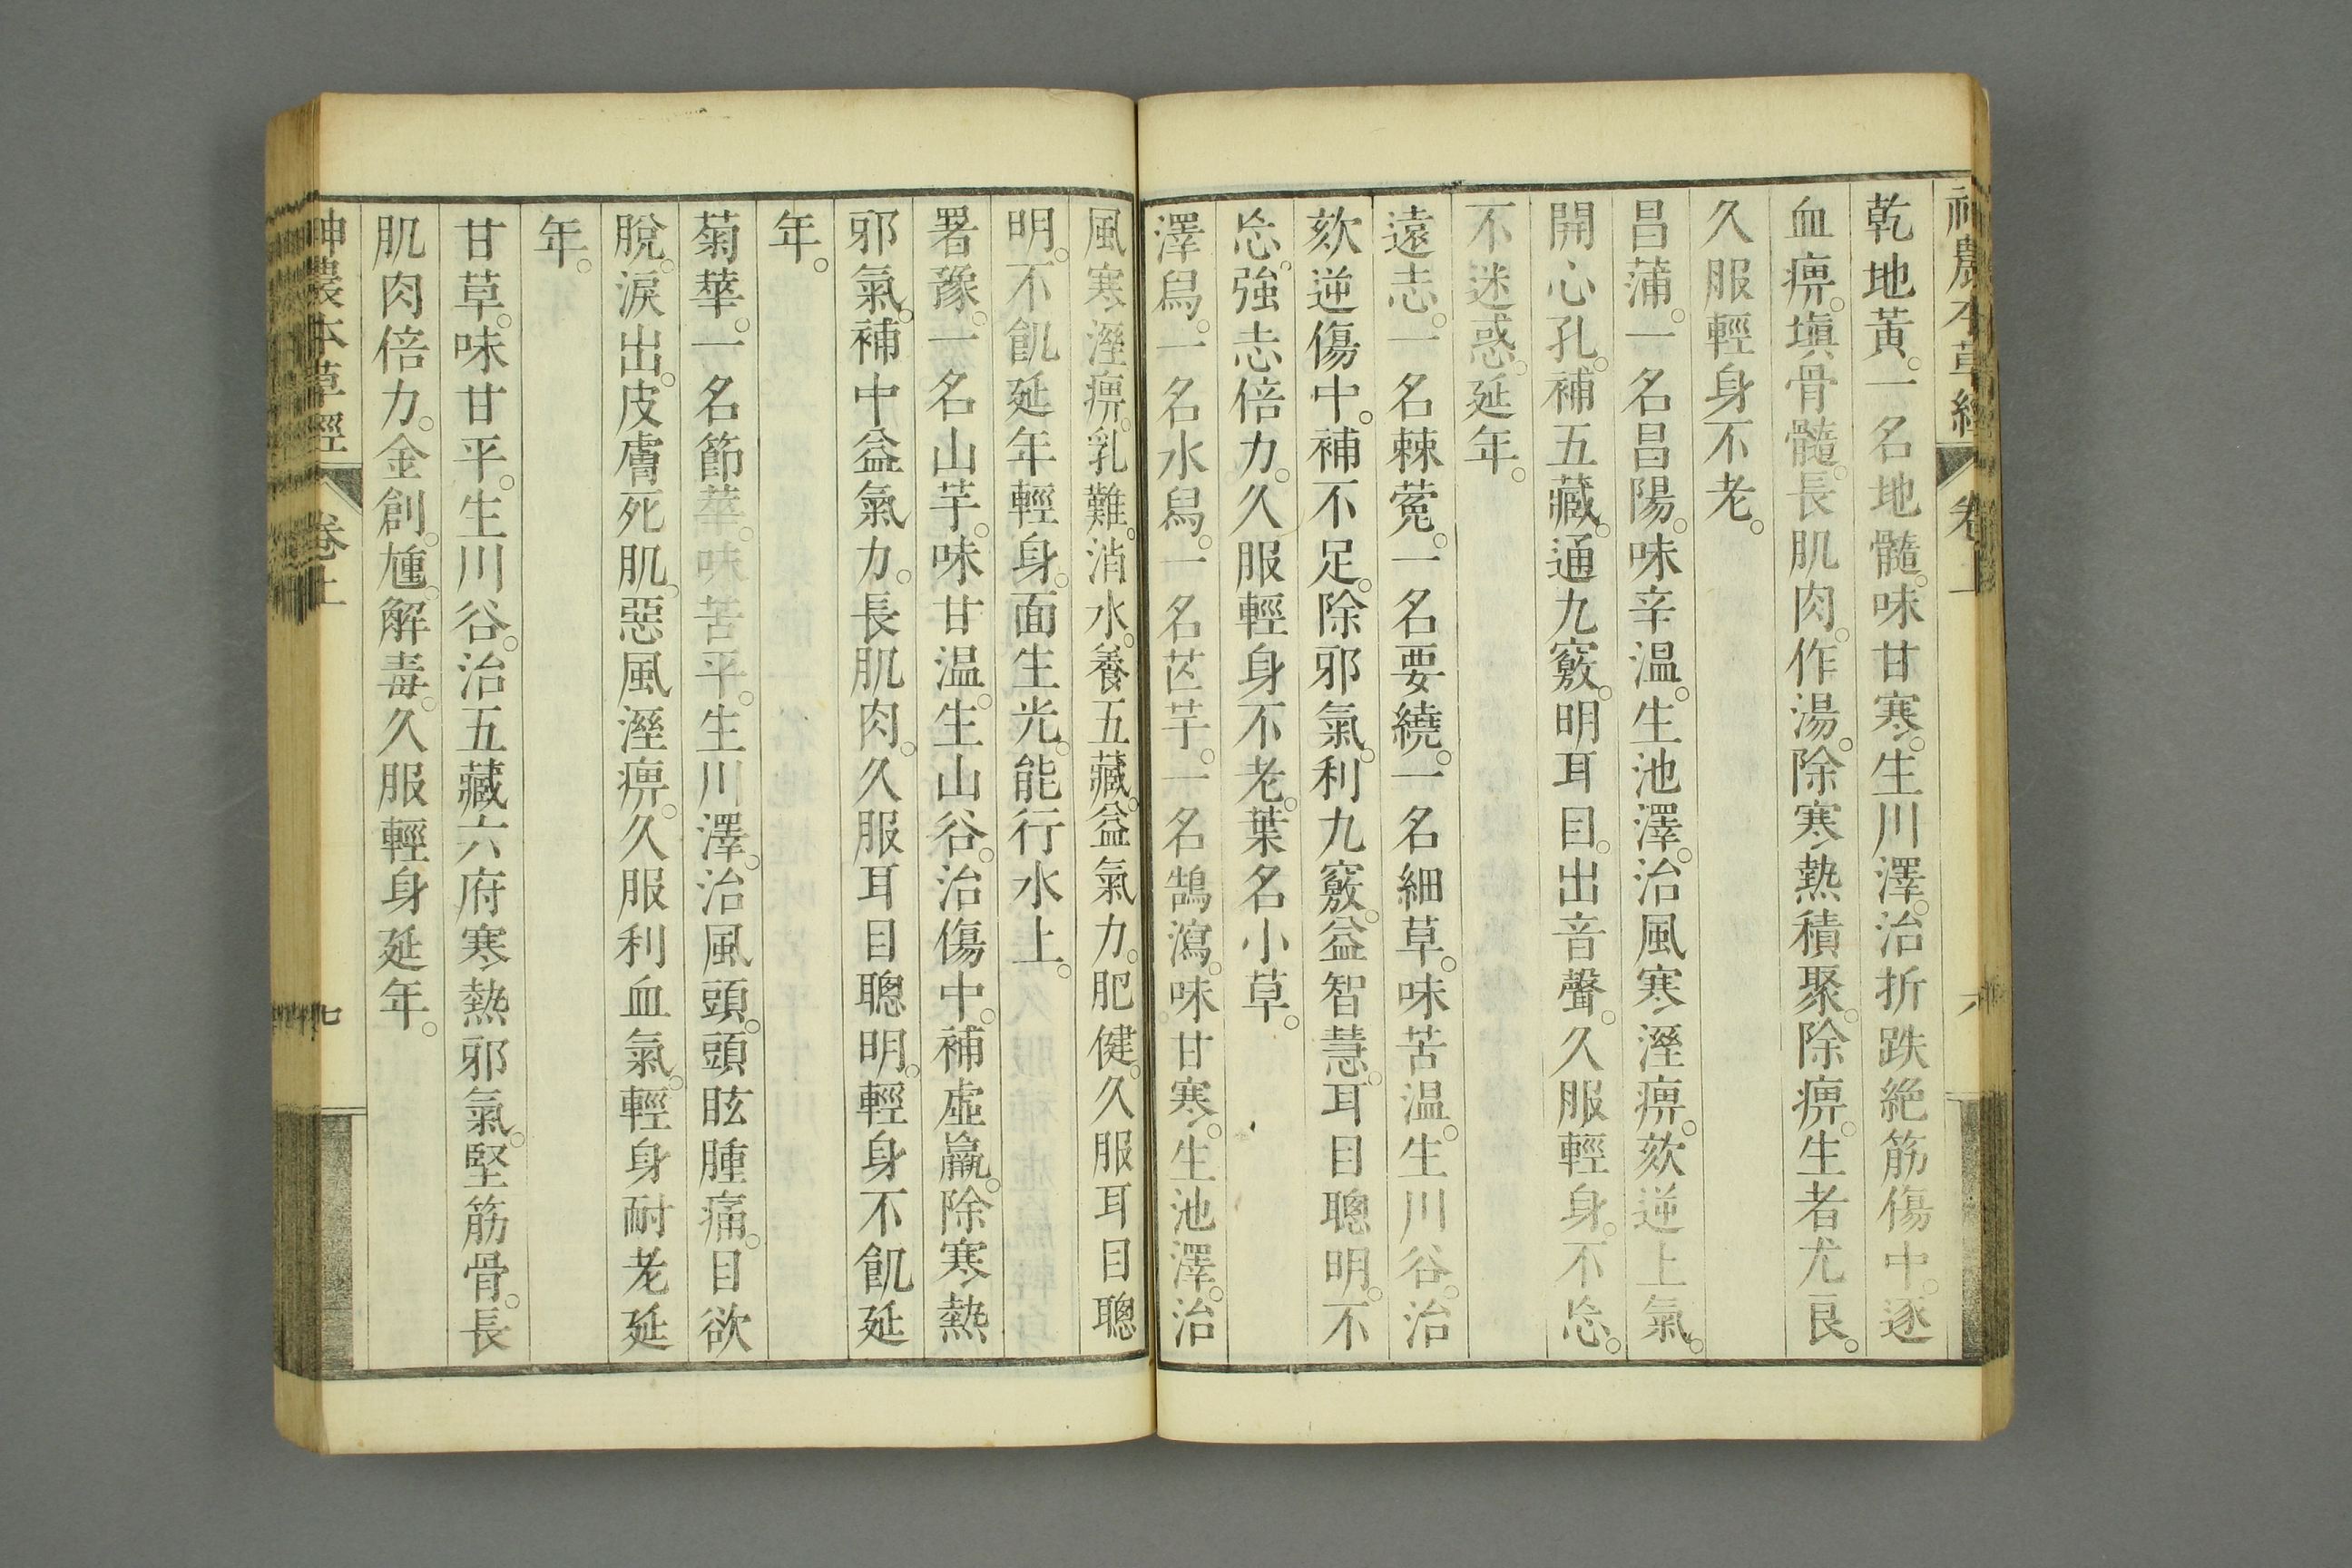 神農本草經 卷上 六
乾地黃。一名地髓。味甘寒。生川澤。治折跌絕筋傷中。逐
血痹。塡骨髓。長肌肉。作湯。除寒熱積聚。除痹。生者尤良。
久服輕身不老。
昌蒲。一名昌陽。味辛温。生池澤。治風寒溼痹。欬逆上氣。
開心孔。補五藏。通九竅。明耳目。出音聲。久服輕身。不忘。
不迷惑。延年。
遠志。一名棘菀。一名要繞。一名細草。味苦温。生川谷。治
欬逆傷中。補不足。除邪氣。利九竅。益智慧。耳目聰明。不
忘。強志倍力。久服輕身不老。葉名小草。
澤舄。一名水舄。一名芒芋。一名鵠瀉。味甘寒。生池澤。治
風寒溼痹。乳難。消水。養五藏。益氣力。肥健。久服耳目聰
明。不飢延年輕身。面生光。能行水上。
署豫。一名山芋。味甘温。生山谷。治傷中。補虛羸。除寒熱
邪氣。補中益氣力。長肌肉。久服耳目聰明。輕身不飢延
年。
菊華。一名節華。味苦平。生川澤。治風頭。頭眩腫痛。目欲
脫。淚出。皮膚死肌。惡風溼痹。久服利血氣。輕身耐老延
年。
甘草。味甘平。生川谷。治五藏六府寒熱邪氣。堅筋骨。長
肌肉倍力。金創。尰。解毒。久服輕身延年。
神農本草經 卷上 七